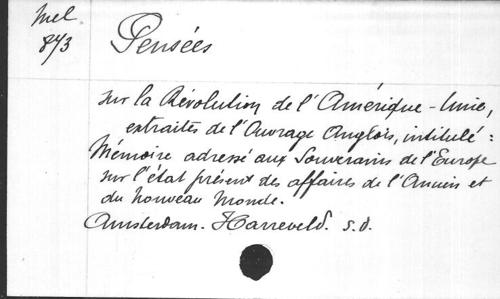 Mel
873
Pensées
sur la Révolution de l'Amérique-Unie,
extraites de l'Ouvrage Anglois, intitulé :
Mémoire adressé aux Souverains de l'Europe
sur l'état présent des affaires de l'Ancien et
du Nouveau Monde.
Amsterdam. Harreveld. s.d.